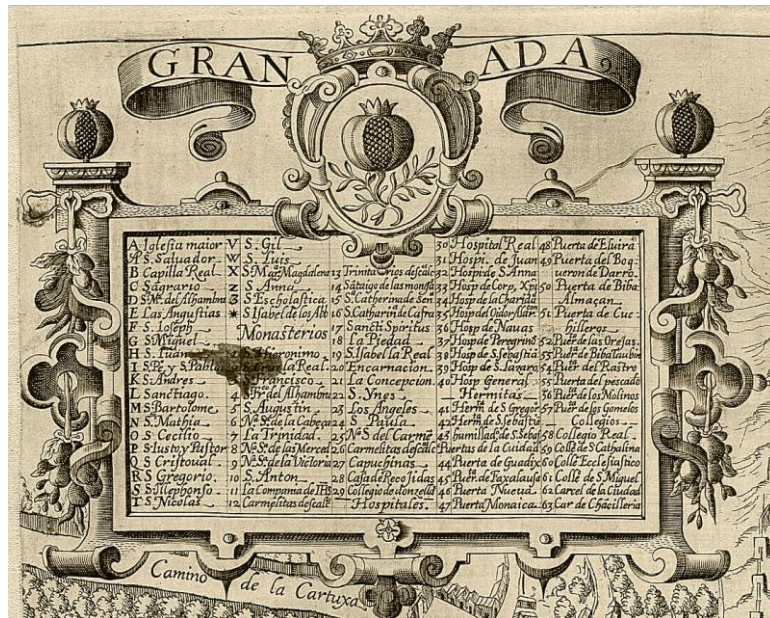 GRANADA
A Iglesia maior
S. Salvador
B Capilla Real
C Sagrario
D Sª Mª del Alhambra
E Las Angustias
F S. Ioseph
G S. Miguel
H S. Iuan
I S. Pº y S. Pablo
K S. Andres
L Sanctiago.
M S. Bartolome
N S. Mathia
O S. Cecilio
P S. Iusto y Pastor
Q S. Cristoual
R S. Gregorio.
S S. Illephonso
T S. Nicolas
V S. Gil
W S. Luis
X Sª Mar. Magdalena
Z S. Anna
S. Escholastica
* S. Isabel de los Abb
Monasterios
S. Hieronimo
la Real
Francisco
4 del Alhambra
5 S. Augustin
6 Nª Sª de la Cabeça
7 La Trinidad.
8 Nª Sª de las Merced
9 Nª Sª de la Victoria
10 S. Anton
11 La Compania de IHS
12 Carmelitas descalç
13 Trinitarios descalç
14
15 S. Catherina de Sen
16 S. Catharin de Cafra
17 Sancti Spiritus
18 La Piedad
19 S. Isabel la Real
20 Encarnacion
21 La Concepcion.
22 S. Ynes
23 Los Angeles
24 S. Paula
25 Nª S. del Carmē
26 Carmelitas descalç
27 Capuchinas
28 Casa de Recojidas
29 Collegio de donzellas
Hospitales.
30 Hospital Real
31 Hospi. de Juan
32 Hospi de S. Anna
33 Hosp de Corp, Xpi
34 Hosp de la Charidad
35 Hosp del Oidor
36 Hosp de Nauas
37 Hosp de Peregrino
38 Hosp de S. Sebastiā
39 Hosp de S. Lazaro
40 Hosp General
Hermitas
41 Herm. de S. Gregor
42 Herm. de S. Sebastiā
43 humillad. de S. Sebas
Puertas de la Cuidad
44 Puerta de Guadix
45 Puer. de Faxalauza
46 Puerta Nueua
47 Puerta Monaica
48 Puerta de Eluira
49 Puerta del Boq
ueron de Darro.
50 Puerta de Biba
Almaçan
51 Puerta de Cuc
hilleros
52 Puer. de las Orejas
53 Puer. de Bibataubin
54 Puer. del Rastro
55 Puerta del pescado
56 Puer. de los Molinos
57 Puer. de los Gomelos
Collegios
58 Collegio Real
59 Colle de S. Cathalina
60 Colle Ecclesiastico
61 Colle de S. Miguel
62 Carcel de la Ciudad
63 Car de Chacilleria
Camino de la Cartuxa